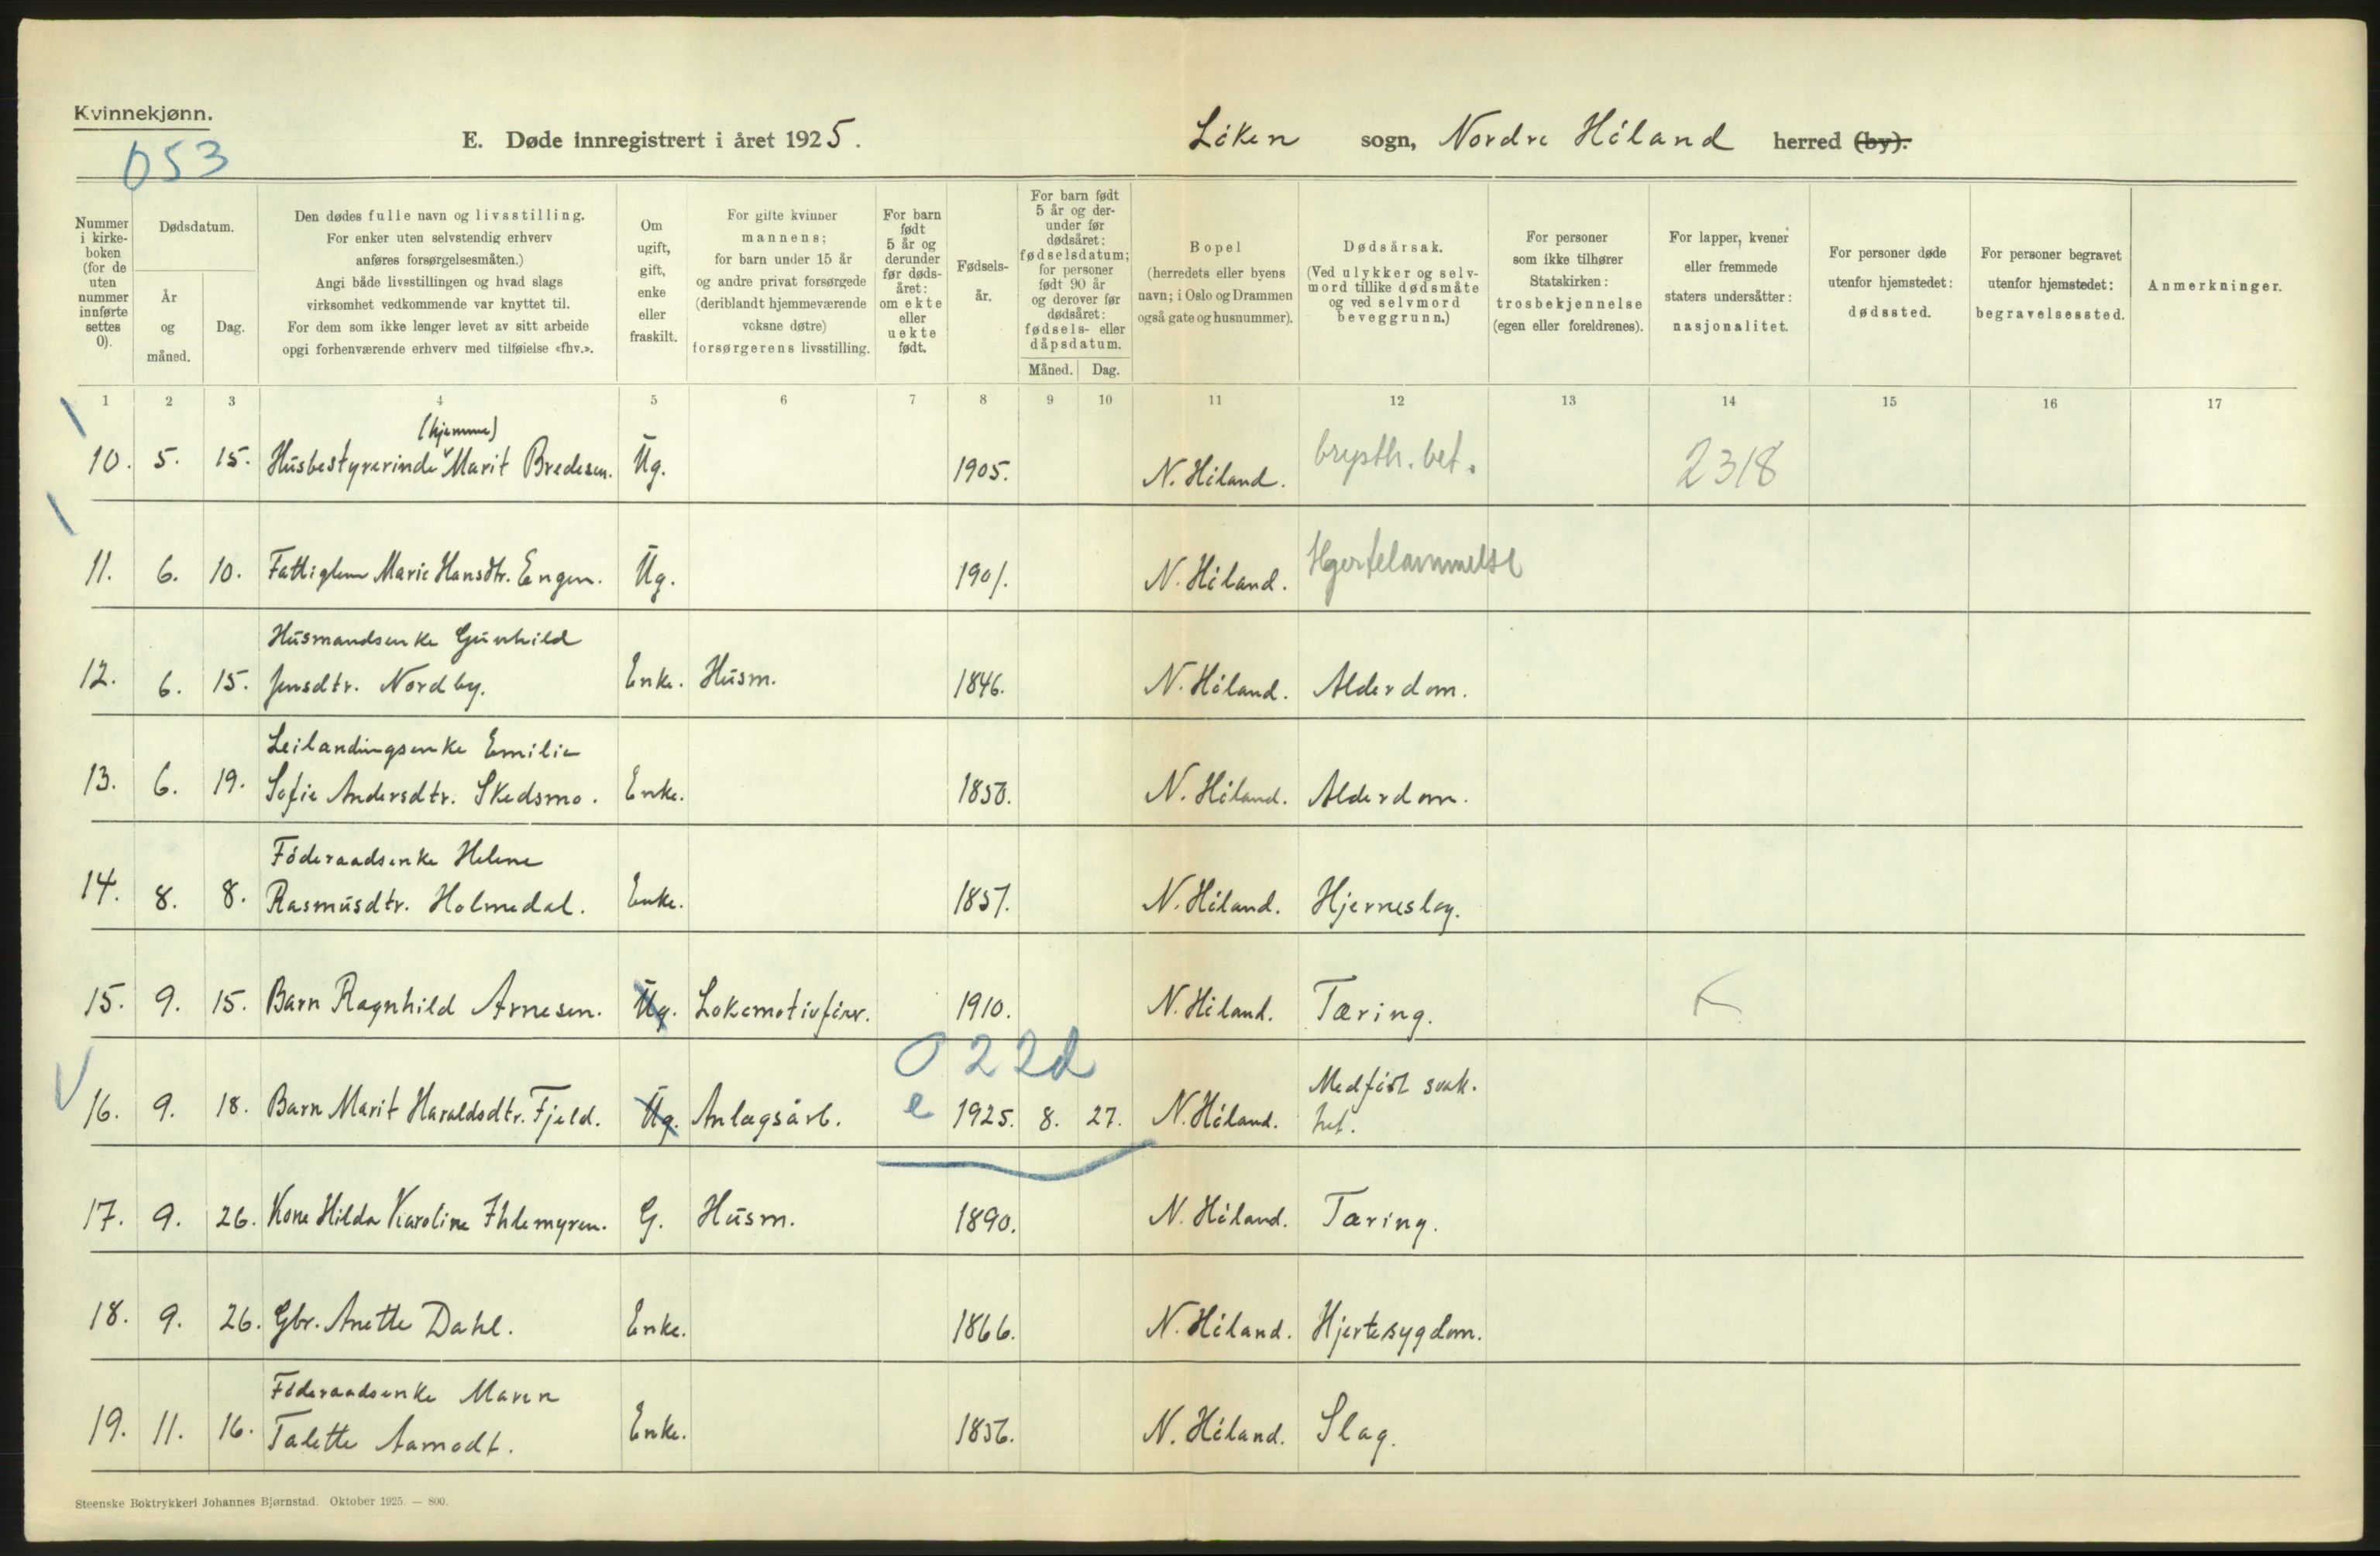 Kvinnekjønn.
053
E. Døde innregistrert i året 1925.
Löken sogn, Nordre Höland herred (by).
Nummer i kirke-boken (for de uten nummer innførte settes 0).
Dødsdatum.
År og måned.
Dag.
Den dødes fulle navn og livsstilling.
For enker uten selvstendig erhverv
anføres forsørgelsesmåten.)
Angi både livsstillingen og hvad slags
virksomhet vedkommende var knyttet til.
For dem som ikke lenger levet av sitt arbeide
opgi forhenværende erhverv med tilføielse «fhv.».
Om ugift, gift, enke eller fraskilt.
For gifte kvinner mannens; for barn under 15 år og andre privat forsørgede (deriblandt hjemmeværende voksne døtre) forsørgerens livsstilling.
For barn født 5 år og derunder før døds-året: om ekte eller uekte født.
Fødsels-år.
For barn født 5 år og der-under før dødsåret: fødselsdatum; for personer født 90 år og derover før dødsåret: fødsels- eller dåpsdatum.
Måned. Dag.
Bopel (herredets eller byens navn; i Oslo og Drammen også gate og husnummer).
Dødsårsak. (Ved ulykker og selv-mord tillike dødsmåte og ved selvmord beveggrunn.)
For personer som ikke tilhører Statskirken: trosbekjennelse (egen eller foreldrenes).
For lapper, kvener eller fremmede staters undersåtter: nasjonalitet.
For personer døde utenfor hjemstedet: dødssted.
For personer begravet utenfor hjemstedet: begravelsessted.
Anmerkninger.
1 2 3 4 5 6 7 8 9 10 11 12 13 14 15 16 17
(hjemme)
10. 5. 15. Husbestyrerinde Marit Bredesen. Ug. 1905. N. Höland. brysth. bet. 2318
11. 6. 10. Fattiglem Marie Hansdtr. Engen. Ug. 1901. N. Höland. Hjertelammelse
Husmandsenke Gunhild
12. 6. 15. Jensdtr. Nordby. Enke. Husm. 1846. N. Höland. Alderdom.
Leilandingsenke Emilie
13. 6. 19. Sofie Andersdtr. Skedsmo. Enke. N. Höland. Alderdom.
Föderaadsenke Helene
14. 8. 8. Rasmusdtr. Holmedal. Enke. 1857. N. Höland. Hjerneslag.
15. 9. 15. Barn Ragnhild Arnesen. Ug. Lokomotivförer. 1910. N. Höland. Tæring.
022d
16. 9. 18. Barn Marit Haraldsdtr. Fjeld. Ug. Anlægsarb. e 1925. 8. 27. N. Höland. Medfödt svak-
het.
17. 9. 26. Kone Hilda Karoline Ihlemyren. G. Husm. 1890. N. Höland. Tæring.
18. 9. 26. Gbr. Anette Dahl. Enke. 1866. N. Höland. Hjertesygdom.
Föderaadsenke Maren
19. 11. 16. Talette Aamodt. Enke. 1856. N. Höland. Slag.
Steenske Boktrykkeri Johannes Bjørnstad. Oktober 1925. — 800.